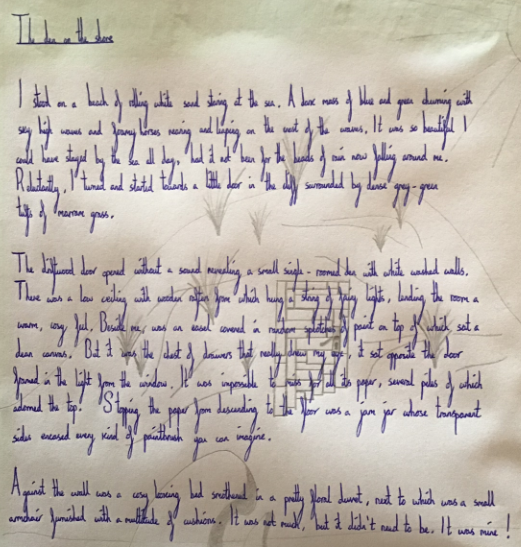 The den on the shore
I stood on a beach of rolling white sand staring at the sea. A dark mass of blue and green churning with
sky high waves and foamy horses rearing and leaping on the crest of the waves. It was so beautiful I
could have stayed by the sea all day, had it not been for the beads of rain now falling around me.
Reluctantly, I turned and started towards a little door in the cliff surrounded by dense grey-green
tufts of marram grass.
The driftwood door opened without a sound revealing a small single-roomed den with white washed walls.
There was a low ceiling with wooden rafters from which hung a string of fairy lights, lending the room a
warm, cosy feel. Beside me, was an easel covered in random splotches of paint on top of which sat a
clean canvas. But it was the chest of drawers that really drew my eye, it sat opposite the door
framed in the light from the window. It was impossible to miss for all its paper, several piles of which
adorned the top. Stopping the paper from descending to the floor was a jam jar whose transparent
sides encased every kind of paintbrush you can imagine.
Against the wall was a cosy looking bed smothered in a pretty floral duvet, next to which was a small
armchair furnished with a multitude of cushions. It was not much, but it didn't need to be. It was mine!